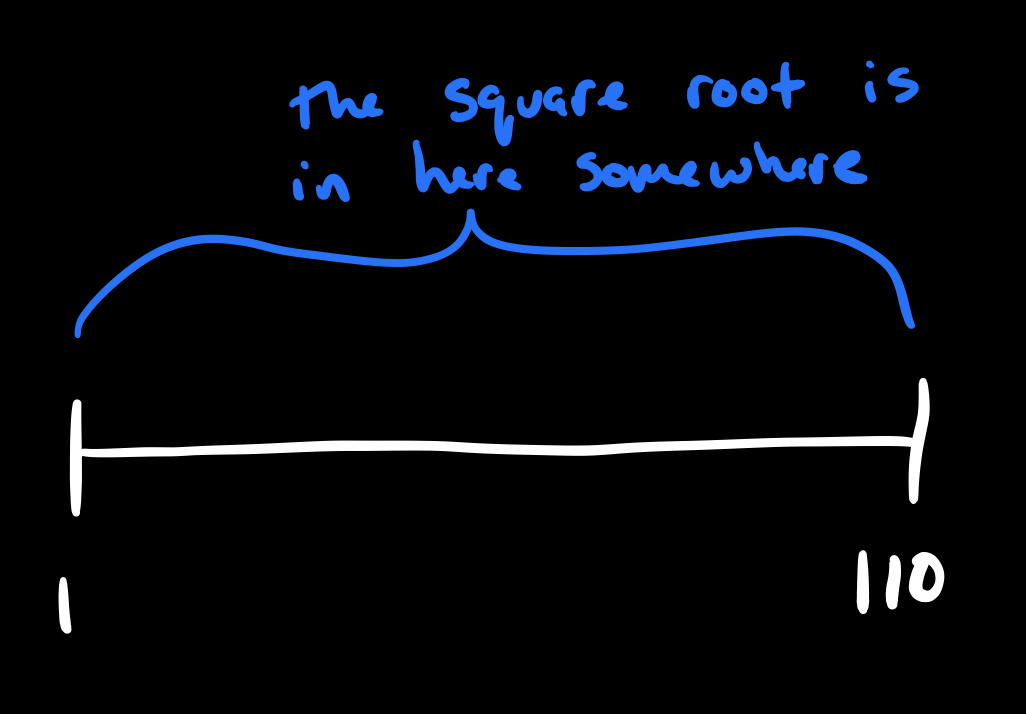 the square root is
in here somewhere
1
110